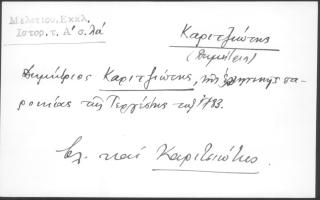 Μελετίου, Εκκλ.
Ιστορ. τ. Α' σ. λά
Καριτζιώτης
(Δημήτριος)
Δημήτριος Καριτζιώτης, της ελληνικής πα-
ροικίας της Τεργέστης τω 1783.
βλ. και Καριτσιώτης.